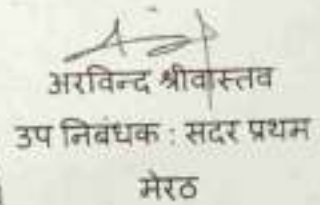 अरविन्द श्रीवास्तव
उप निबंधक : सदर प्रथम
मेरठ